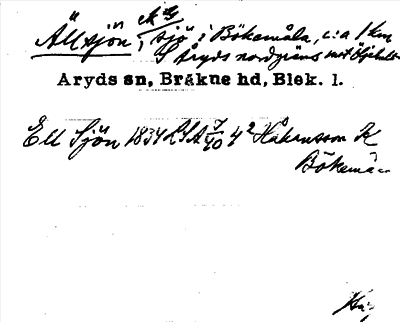 Ällsjön, sjö i Bökemåla, c:a 1 km
S Aryds nordgräns mot
Aryds sn, Bräkne hd, Blek. l.
Ell Sjön 1834 LSA 7/40 4² Håkansson K
Bökemå